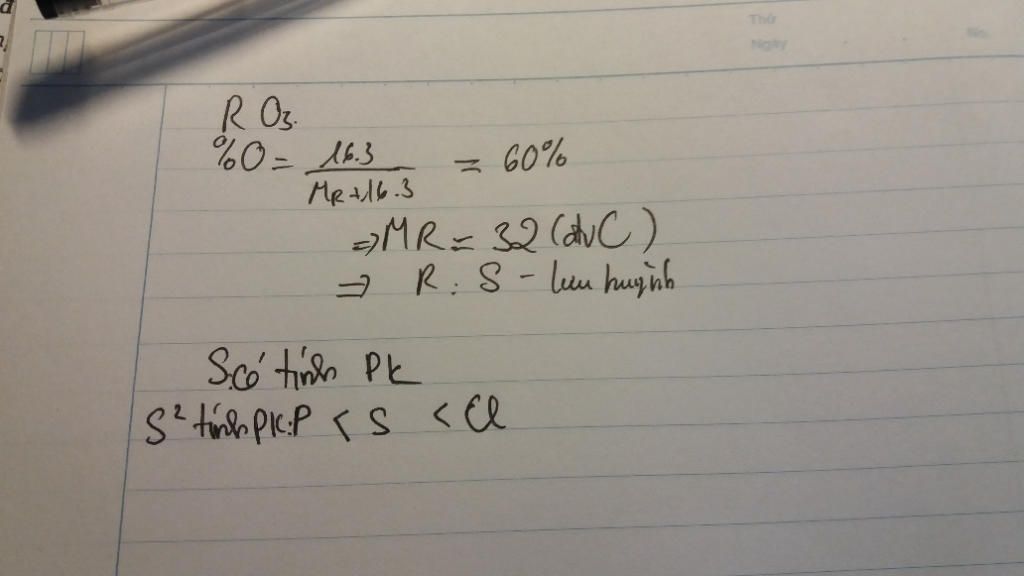 Thứ
Ngày
No.
R O3.
%O = 16.3 / MR+16.3 = 60%
=> MR = 32 (đvC)
=> R : S - lưu huỳnh
S có tính PK
S² tính PK: P < S < Cl